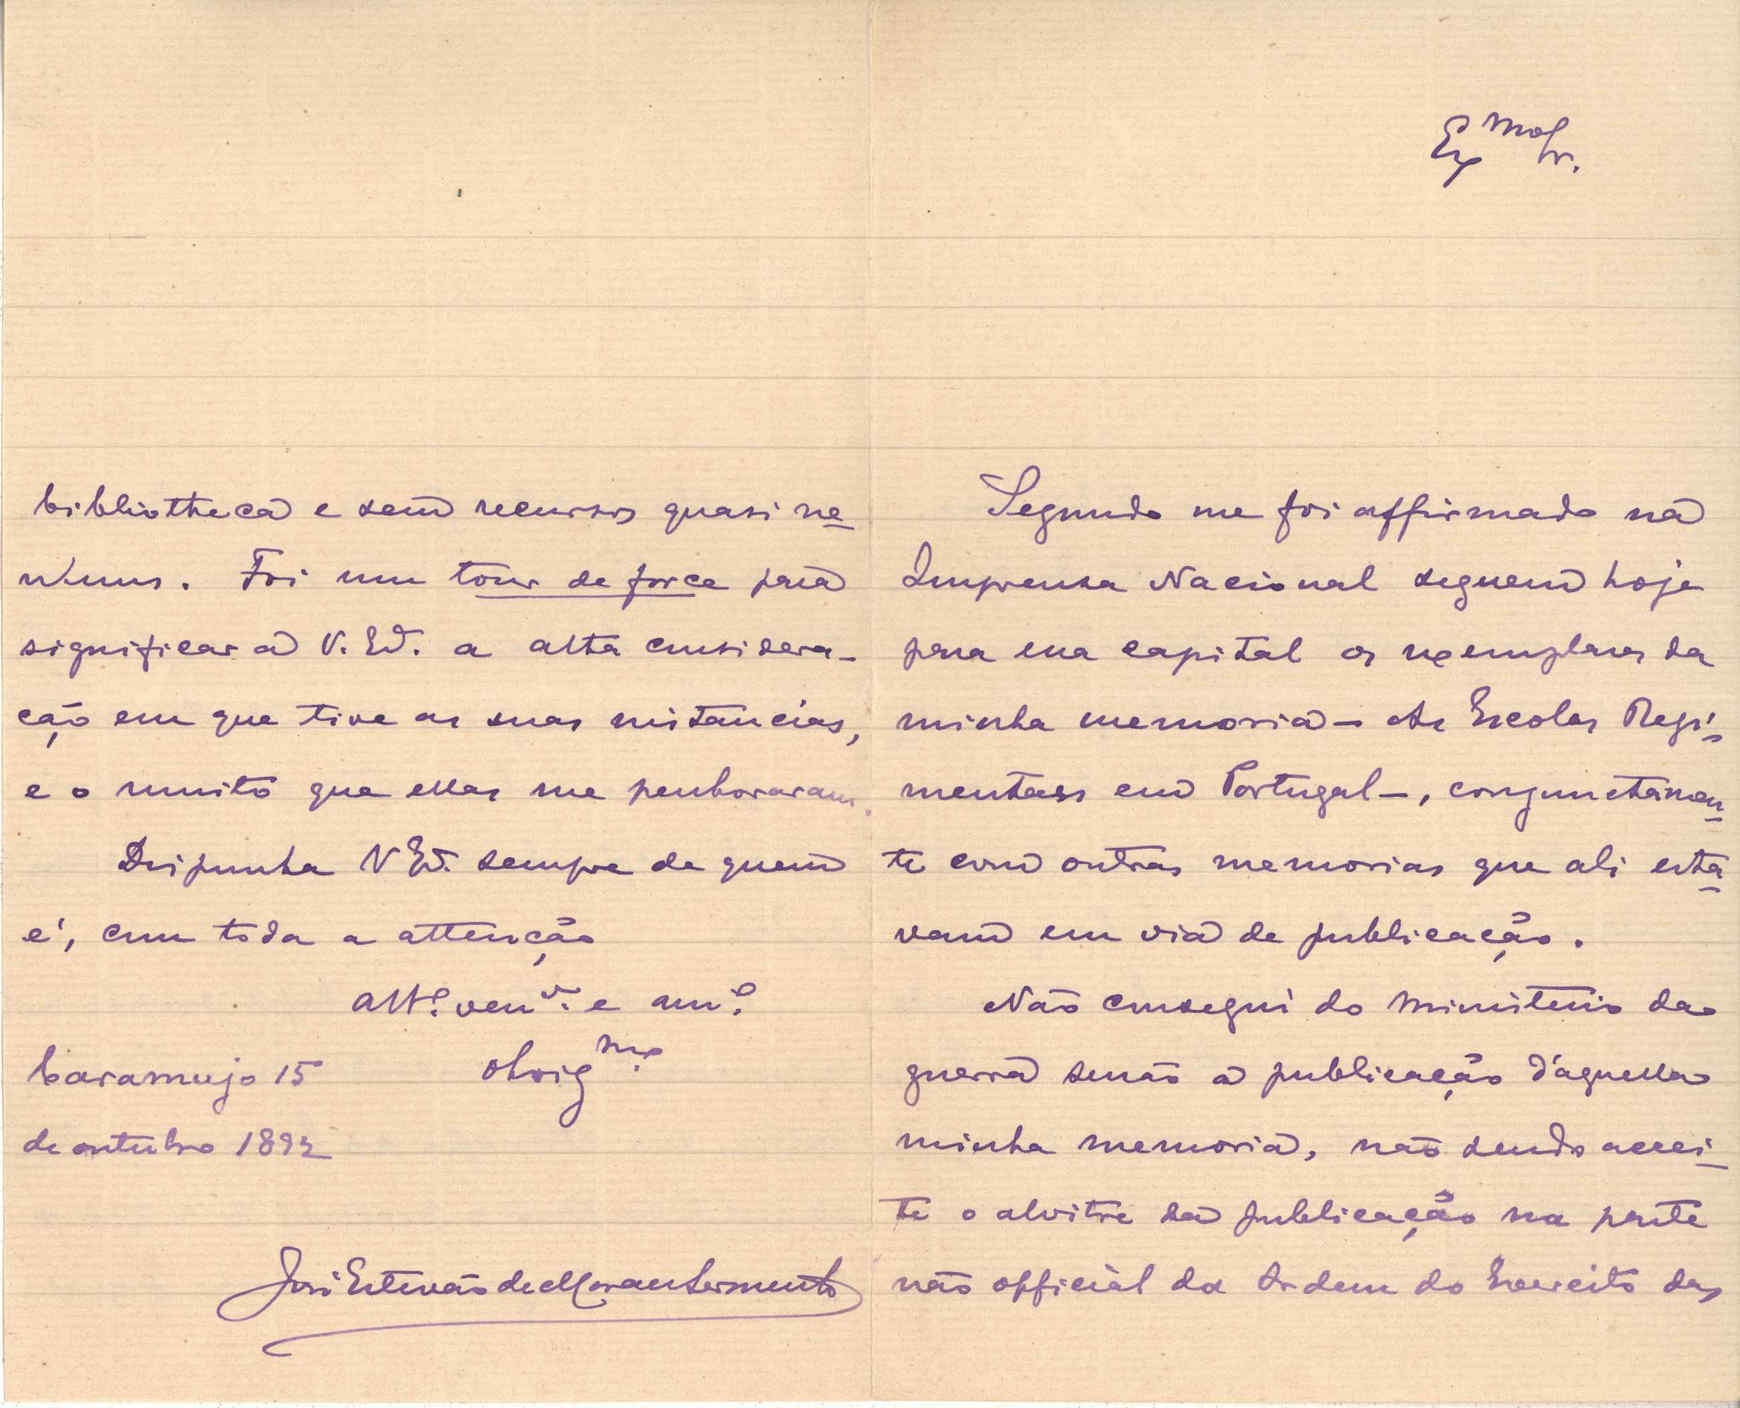 Exmo Sr.
Segundo me foi affirmado na
Imprensa Nacional seguem hoje
para essa capital os exemplares da
minha memoria – As Escolas Regi-
mentaes em Portugal –, conjunctamen-
te com outras memorias que ali esta-
vam em via de publicação.
Não consegui do ministerio da
guerra senão a publicação d'aquella
minha memoria, não sendo accei-
te o alvitre da publicação na parte
não official da Ordem do Exercito das
bibliotheca e sem recursos quasi ne-
nhuns. Foi um tour de force para
significar a V. Exª. a alta considera-
ção em que tive as suas instancias,
e o muito que ellas me penhoraram.
Disponha V Exª. sempre de quem
é, com toda a attenção
Attº. venor. e amº.
obrigmo.
Caramujo 15
de outubro 1892
José Estevão de Moraes Sarmento